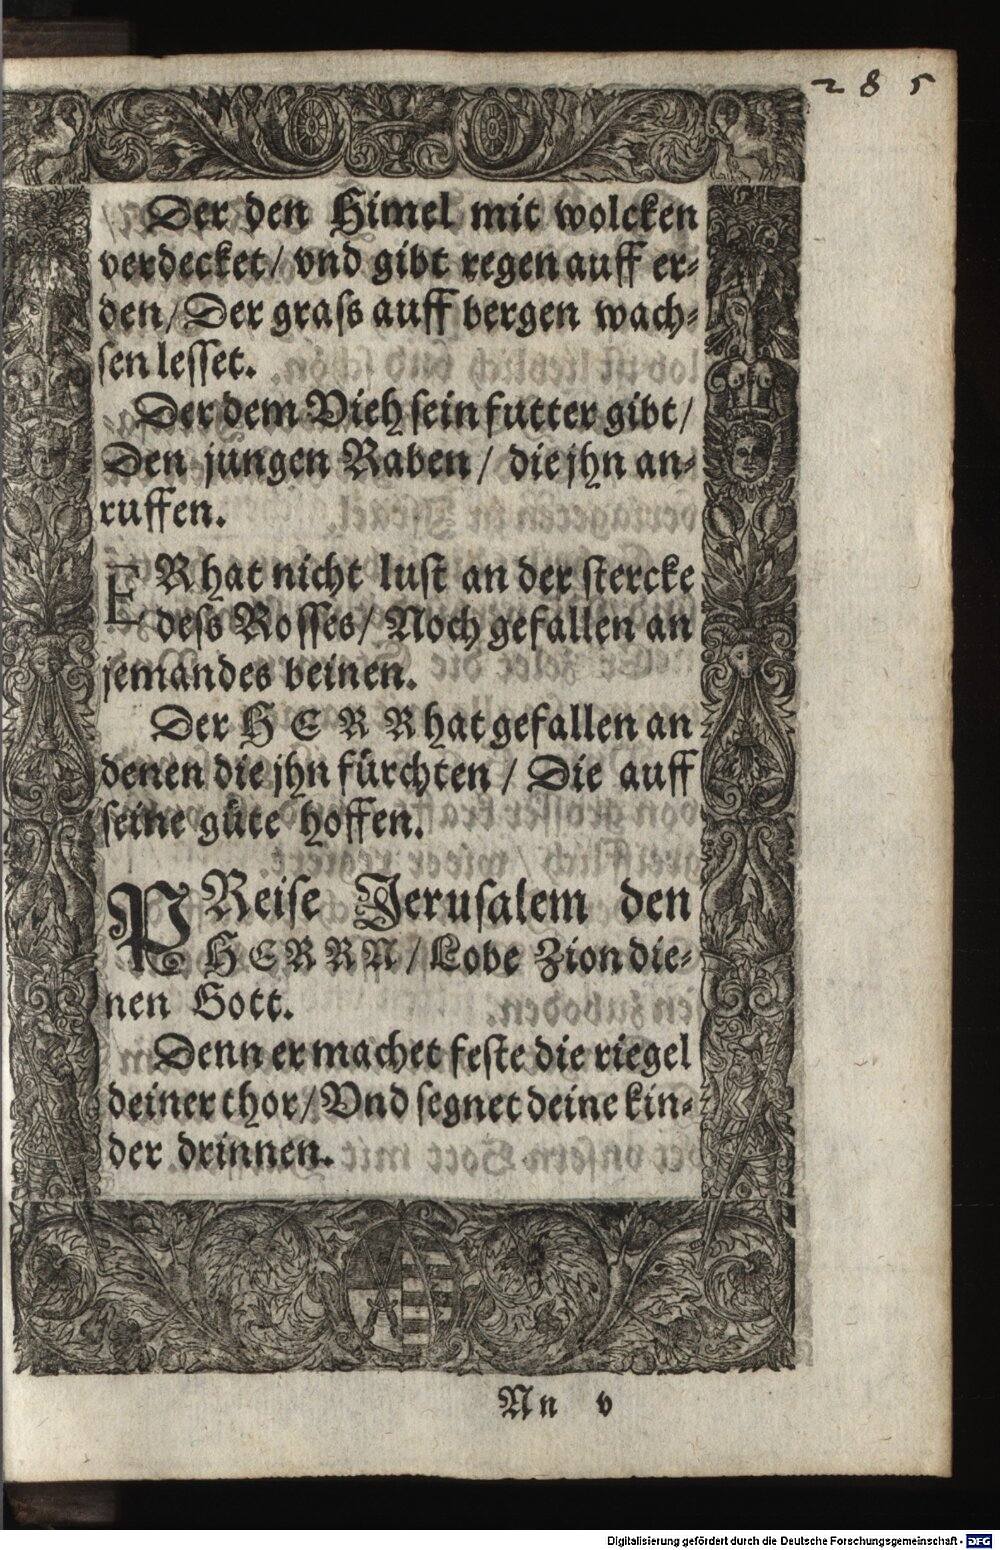 285
Der den Himel mit wolcken
verdecket / vnd gibt regen auff er-
den / Der graſs auff bergen wach-
ſen leſſet.
Der dem Vieh ſein futter gibt /
Den jungen Raben / die jhn an-
ruffen.
ER hat nicht luſt an der ſtercke
deſs Roſſes / Noch gefallen an
jemandes beinen.
Der HERR hat gefallen an
denen die jhn fürchten / Die auff
ſeine güte hoffen.
PReiſe Jeruſalem den
HERRN / Lobe Zion die-
nen Gott.
Denn er machet feſte die riegel
deiner thor / Vnd ſegnet deine kin-
der drinnen.
Nn v
Digitalisierung gefördert durch die Deutsche Forschungsgemeinschaft - DFG